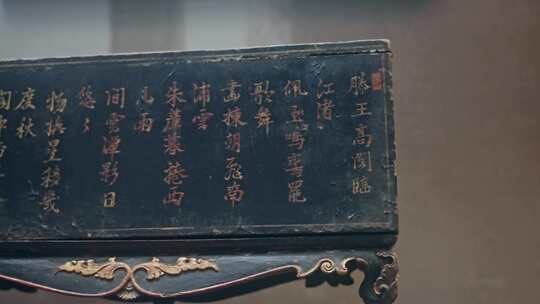 滕王高閣臨
江渚
佩玉鳴鸞罷
歌舞
畫棟朝飛南
浦雲
朱簾暮捲西
山雨
閒雲潭影日
悠々
物換星移幾
度秋